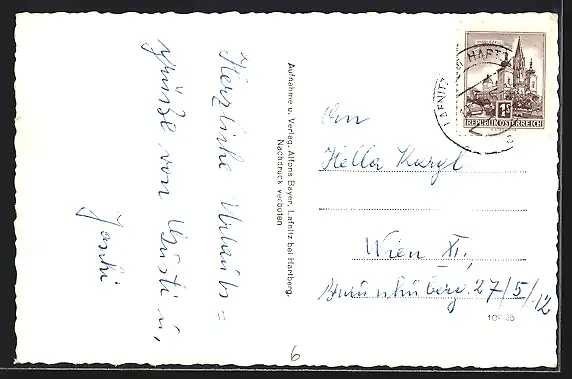 Herzliche Urlaubs=
grüße von Gusti u.
Joschi
Aufnahme u. Verlag, Alfons Bayer, Lafnitz bei Hartberg.
Nachdruck verboten
LAFNITZ
HARTB
1S
REPUBLIK ÖSTERREICH
An
Hella Kargl
Wien XI,
27/5/12
6